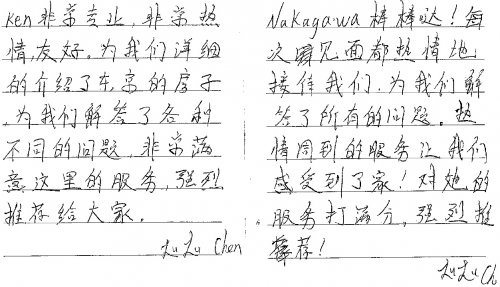 Ken 非常专业，非常热
情，友好。为我们详细
的介绍了东京的房子
，为我们解答了各种
不同的问题，非常满
意这里的服务，强烈
推荐给大家。
LuLu Chen
Nakagawa 棒棒哒！每
次见面都热情地
接待我们，为我们解
答了所有的问题。热
情周到的服务让我们
感受到了家！对她的
服务打满分，强烈推
荐！
LuLu Ch